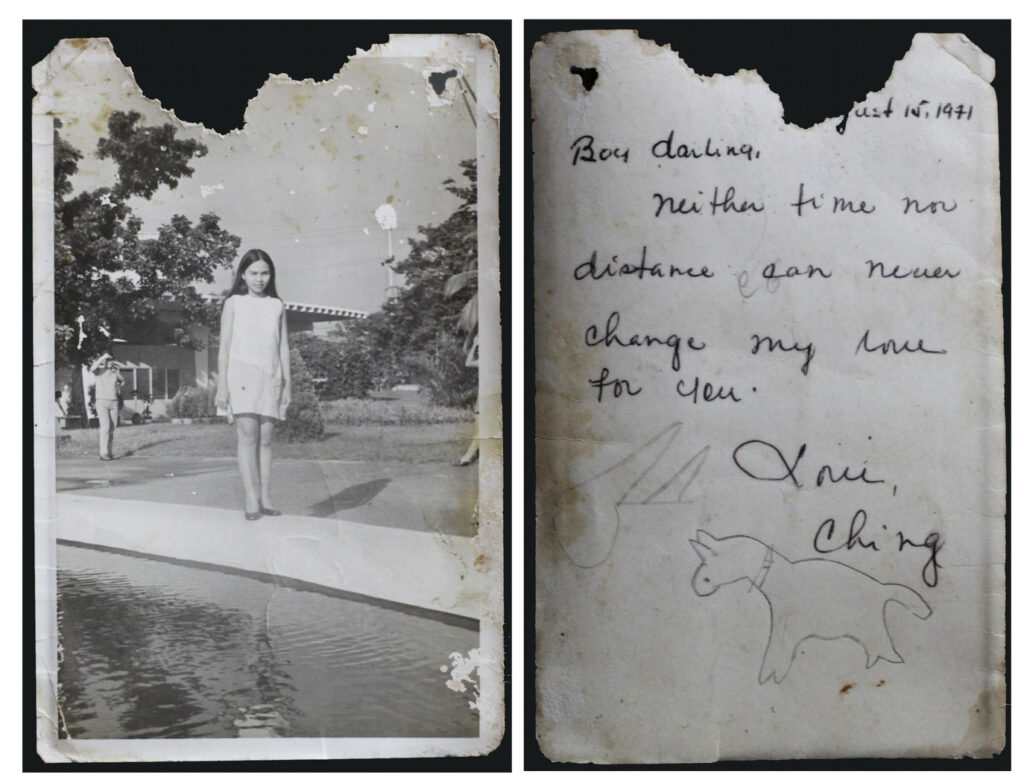 gust 15, 1971
Boy darling,
neither time nor
distance can never
change my love
for you.
Love,
Ching